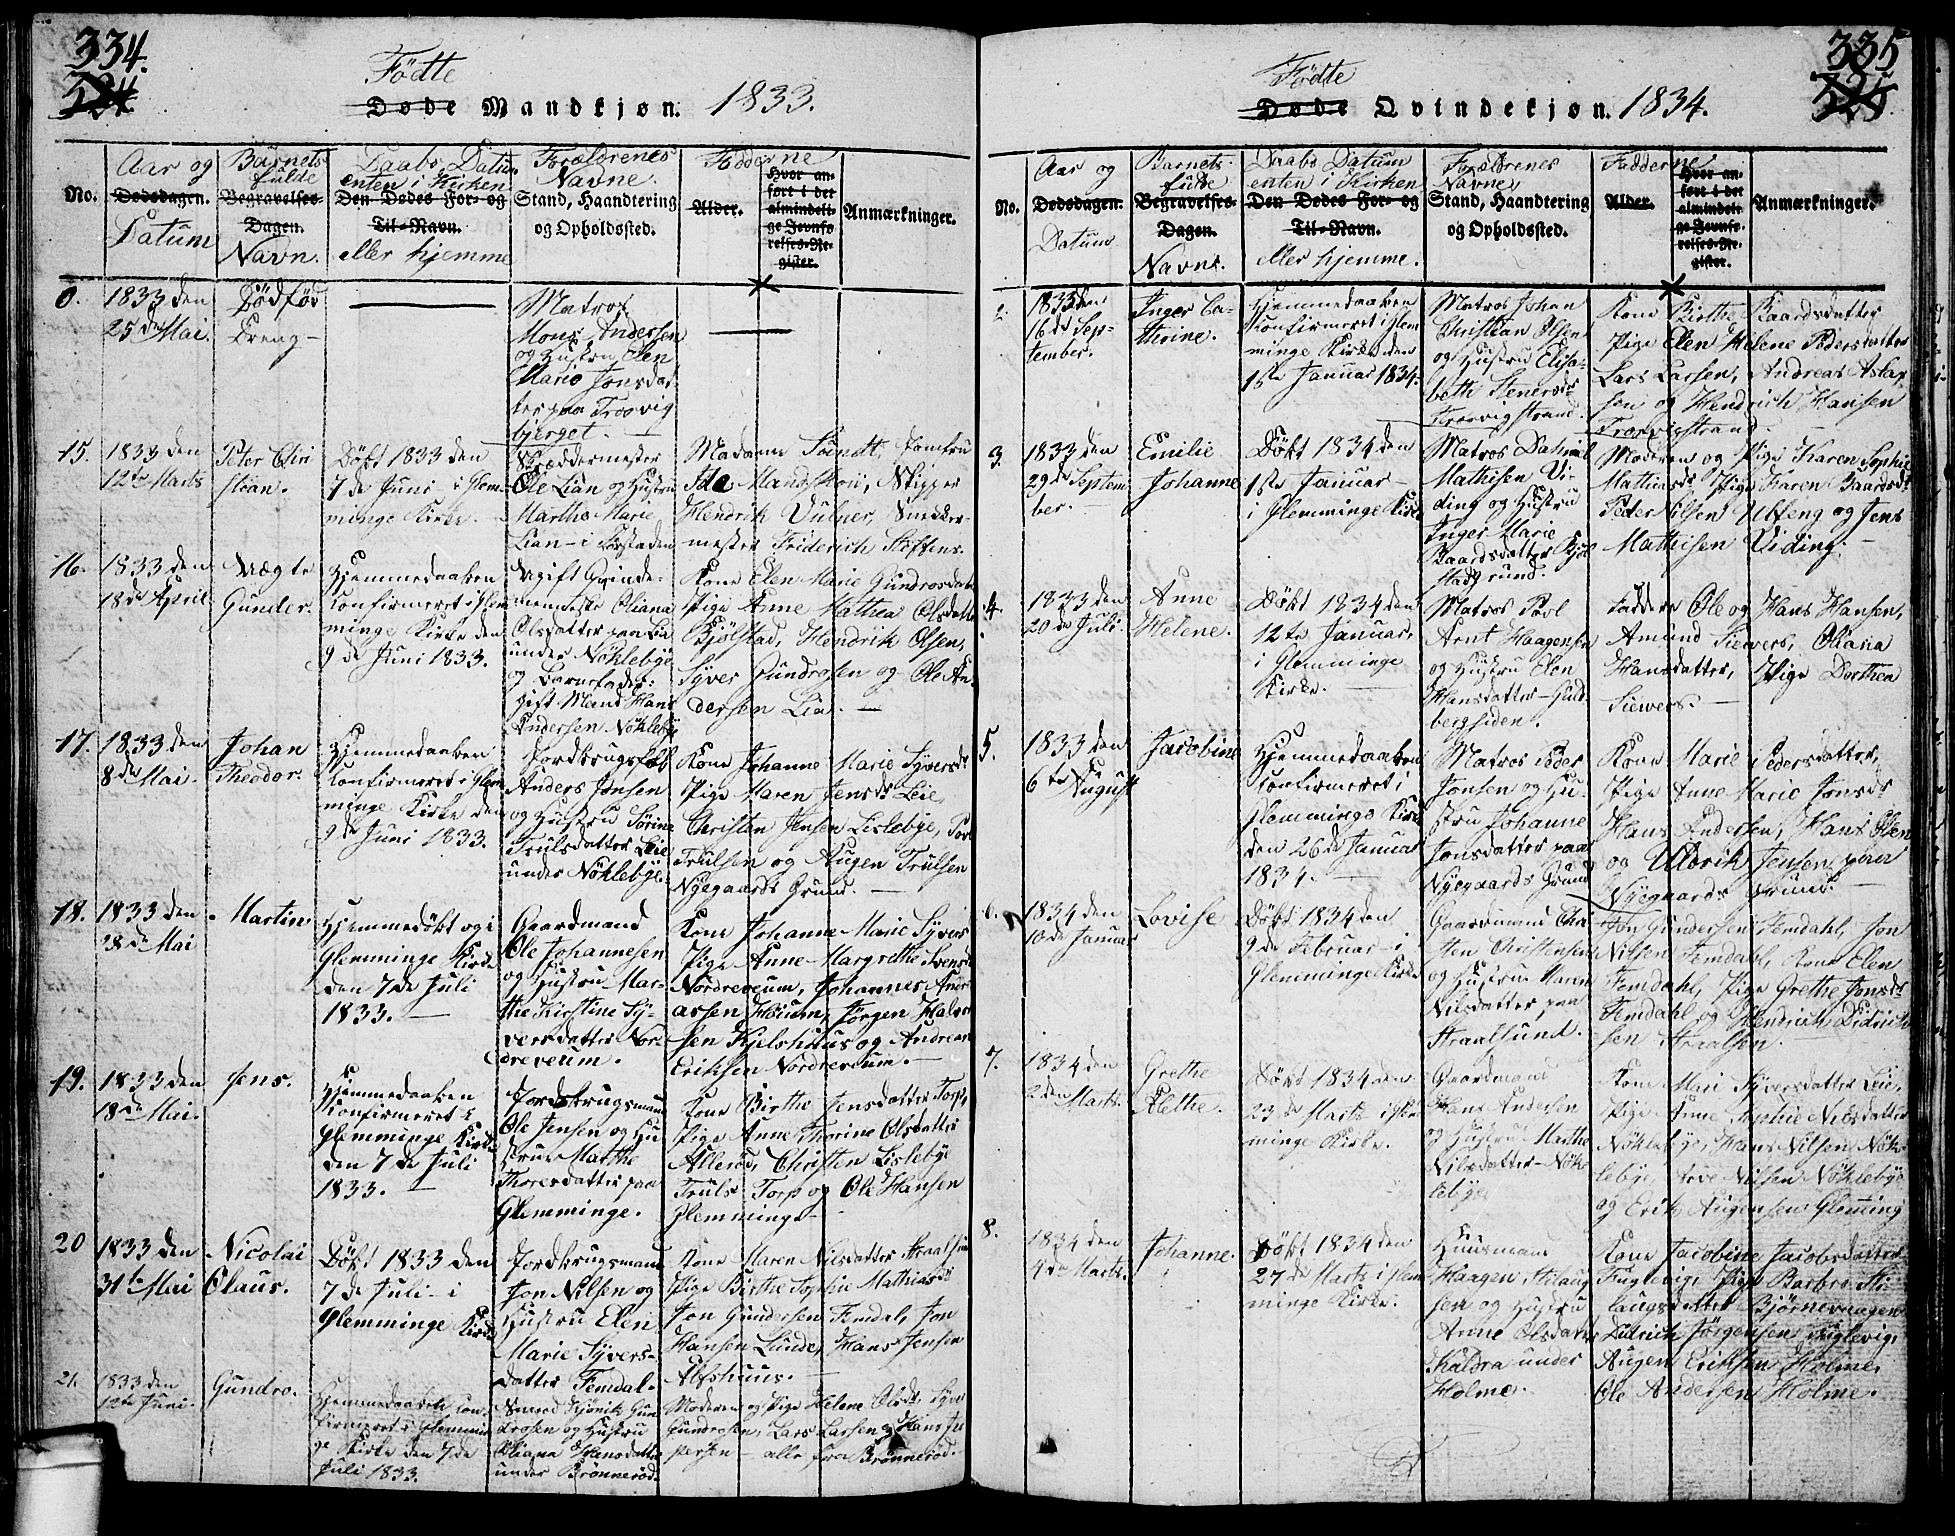 334.
Fødte
Døde Mandkjøn. 1833.
Aar og
Dødsdagen.
Datum
Barnets
fulde
Begravelses-
Dagen.
Navn.
Daabs Datum
enten i Kirken
Den Dødes For- og
Til-Navn.
eller hjemme
Forældrenes
Navne.
Stand, Haandtering
og Opholdssted.
Fadderne
Alder.
Hvor an-
ført i det
almindeli-
ge Jevnfø-
relses-Re-
gister.
Anmærkninger.
No.
0.
1833 den
25de Mai.
Dødfød
Dreng -
Matros
Mons Andersen
og Hustru Elen
Marie Jonsdat-
ter paa Trosvig
bjerget.
15.
1833 den
12te Marts
Peter Chri
stian.
Døbt 1833 den
7de Juni i Glem-
minge Kirke.
Skræddermester
Ole Lian og Hustru
Marthe Marie
Lian - i Forstaden
Madame Svindt, Jomfru
Ida Mandskou, Skipper
Hendrik Vulner, Snedker-
mester Friderich Steffens.
16.
1833 den
18de April
Vægte
Gunder.
Hjemmedøaben
Konfirmeret i Glem
minge Kirke den
9de Juni 1833.
Ugift Qvinde-
menneske Oliana
Olsdatter paa Lia
under Nøklebye
og Barnefader:
Gift Mand Hans
Andersen Nøklebye
Kone Elen Marie Gundrosdatter
Pige Anne Mathea Olsdatter
Bjølstad, Hendrik Olsen,
Syver Gundrosen og Ole An-
dersen Lia. -
17.
1833 den
8de Mai.
Johan
Theodor.
Hjemmedaaben
Konfirmeret i Glem
minge Kirke den
9de Juni 1833.
Jordbrugsfolk
Anders Jensen
og Hustru Sørine
Trulsdatter Leie
under Nøklebye.
Kone Johanne Marie Syversdr
Pige Maren Jensdr Leie,
Christen Jensen Lislebye, Povl
Trulsen og Augen Trulsen
Nyegaards Grund. -
18.
1833 den
28de Mai
Martin
Hjemmedøbt og i
Glemminge Kirke
den 7de Juli
1833. -
Gaardmand
Ole Johannesen
og Hustru Mar-
the Kirstine Sy-
versdatter Nor-
dreveum.
Kone Johanne Marie Syvers
Pige Anne Margrethe Svensdr
Nordreveum, Johannes Andr
assen Houm, Jørgen Halvor
sen Kjelshuus og Andreas
Eriksen Nordreveum. -
19.
1833 den
18de Mai.
Jens.
Hjemmedaaben
Konfirmeret i
Glemminge Kirke
den 7de Juli
1833. -
Jordbrugsmand
Ole Jensen og Hu
strue Marthe
Thoresdatter paa
Glemminge.
Kone Birthe Jensdatter Torp,
Pige Anne Thorine Olsdatter
Allerød, Christen Lislebye
Truls Torp og Ole Hansen
Glemminge -
20
1833 den
31te Mai
Nicolai
Claus.
Døbt 1833 den
7de Juli - i
Glemminge Kirke
Jordbrugsmand
Jon Nilsen og
Hustru Elen
Marie Syvers-
datter Femdal.
Kone Maren Nilsdatter Straalsund
Pige Birthe Sophie Mathiasdr
Jon Gundersen Femdal, Jon
Hansen Lunde, Hans Jensen
Alfshuus. -
21.
1833 den
12te Juni.
Gundro.
Hjemmedaaben kon-
firmeret i Glemmin
ge Kirke den 7de
Juli 1833.
Gun
drosen og Hustru
Oliana Hansdatter
under Brønnerød.
Moderen og Pige Helene Olsdr, Syver
Gundrosen, Lars Larsen og Hans Je
persen - alle fra Brønnerød.
335
Fødte
Døde Qvindekjøn. 1834.
No.
Aar og
Dødsdagen.
Datum
Barnets
fulde
Begravelses-
Dagen.
Navne.
Daabs Datum
enten i Kirken
Den Dødes For- og
Til-Navn.
eller hjemme.
Forældrenes
Navne,
Stand, Haandtering
og Opholdssted.
Fadderne
Alder.
Hvor an-
ført i det
almindeli-
ge Jevnfø-
relses-Re-
gister.
Anmærkninger.
2.
1833 den
16de Sep-
tember.
Inger Ca-
thrine.
Hjemmedaaben
Konfirmeret i Glem
minge Kirke den
1ste Januar 1834.
Matros Johan
Christian Olsen
og Hustru Elisa-
beth Stenersdr
Trosvigstrand.
Kone Birthe Baardsdatter
Pige Elen Helene Pedersdatter
Lars Larsen, Andreas Aslak
sen og Hendrich Hansen
Trosvigstrand.
3.
1833 den
29de Septem
ber. -
Emilie
Johanne
Døbt 1834 den
1ste Januar -
i Glemminge Kirke
Matros Daniel
Mathisen Vi-
ding og Hustru
Inger Marie
Baardsdatter Bjøl
stadgrund.
Moderen og Pige Karen Sophie
Mathiasdr Pige Karen Baardsdr
Peder Nilsen Ubfeng og Jens
Mathisen Viding. -
4.
1833 den
20de Juli.
Anne
Helene.
Døbt 1834 den
12te Januar,
i Glemminge
Kirke. -
Matros Povl
Arnt Haagensen
og Hustru Elen
Hansdatter - Huld-
bergsiden.
Faddere Ole og Hans Hansen,
Amund Siewers, Oliana
Hansdatter, Pige Dorthea
Siewers. -
5.
1833 den
6te August
Jacobine
Hjemmedaaben
Konfirmeret i
Glemminge Kirke
den 26de Januar
1834. -
Matros Peder
Jonsen og Hu-
stru Johanne
Jonsdatter paa
Nyegaards Grund
Kone Marie Pedersdatter,
Pige Anne Marie Jonsdr
Hans Andersen, Hans Olsen
og Uldrik Jensen paa
Nyegaards Grund. -
6.
1834 den
10de Januar
Lovise
Døbt 1834 den
9de Februar - i
Glemminge Kirke
Gaardmand Chri-
sten Christensen
og Hustrue Maren
Nilsdatter paa
Straalsund.
Jon Gundersen Femdahl, Jon
Nilsen Femdahl, Kone Elen
Femdahl, Pige Grethe Jonsdr
Femdahl og Hendrich Didrich
sen Straalsen.
7.
1834 den
2den Marts
Grethe
Elethe.
Døbt 1834 den
23de Marts i Glem
minge Kirke.
Gaardmand
Hans Andersen
og Hustru Marthe
Nilsdatter - Nøk
lebye
Kone Mari Syversdatter Leie,
Pige Anne Sophie Nilsdatter
Nøklebye, Hans Nilsen Nøk-
lebye, Arve Nilsen Nøklebye
og Erik Augensen Glemming
8.
1834 den
4de Marts.
Johanne.
Døbt 1834 den
27de Marts i Glem
minge Kirke.
Huusmand
Haagen Aslaug
sen og Hustru
Anne Olsdatter
Kaldra under
Holme.
Kone Jacobine Jacobsdatter
Fuglevig, Pige Barbro As-
laugsdatter Bjørnevaagen
Didrich Jørgensen Fuglevig,
Augen Eriksen Holme,
Ole Andersen Holme.